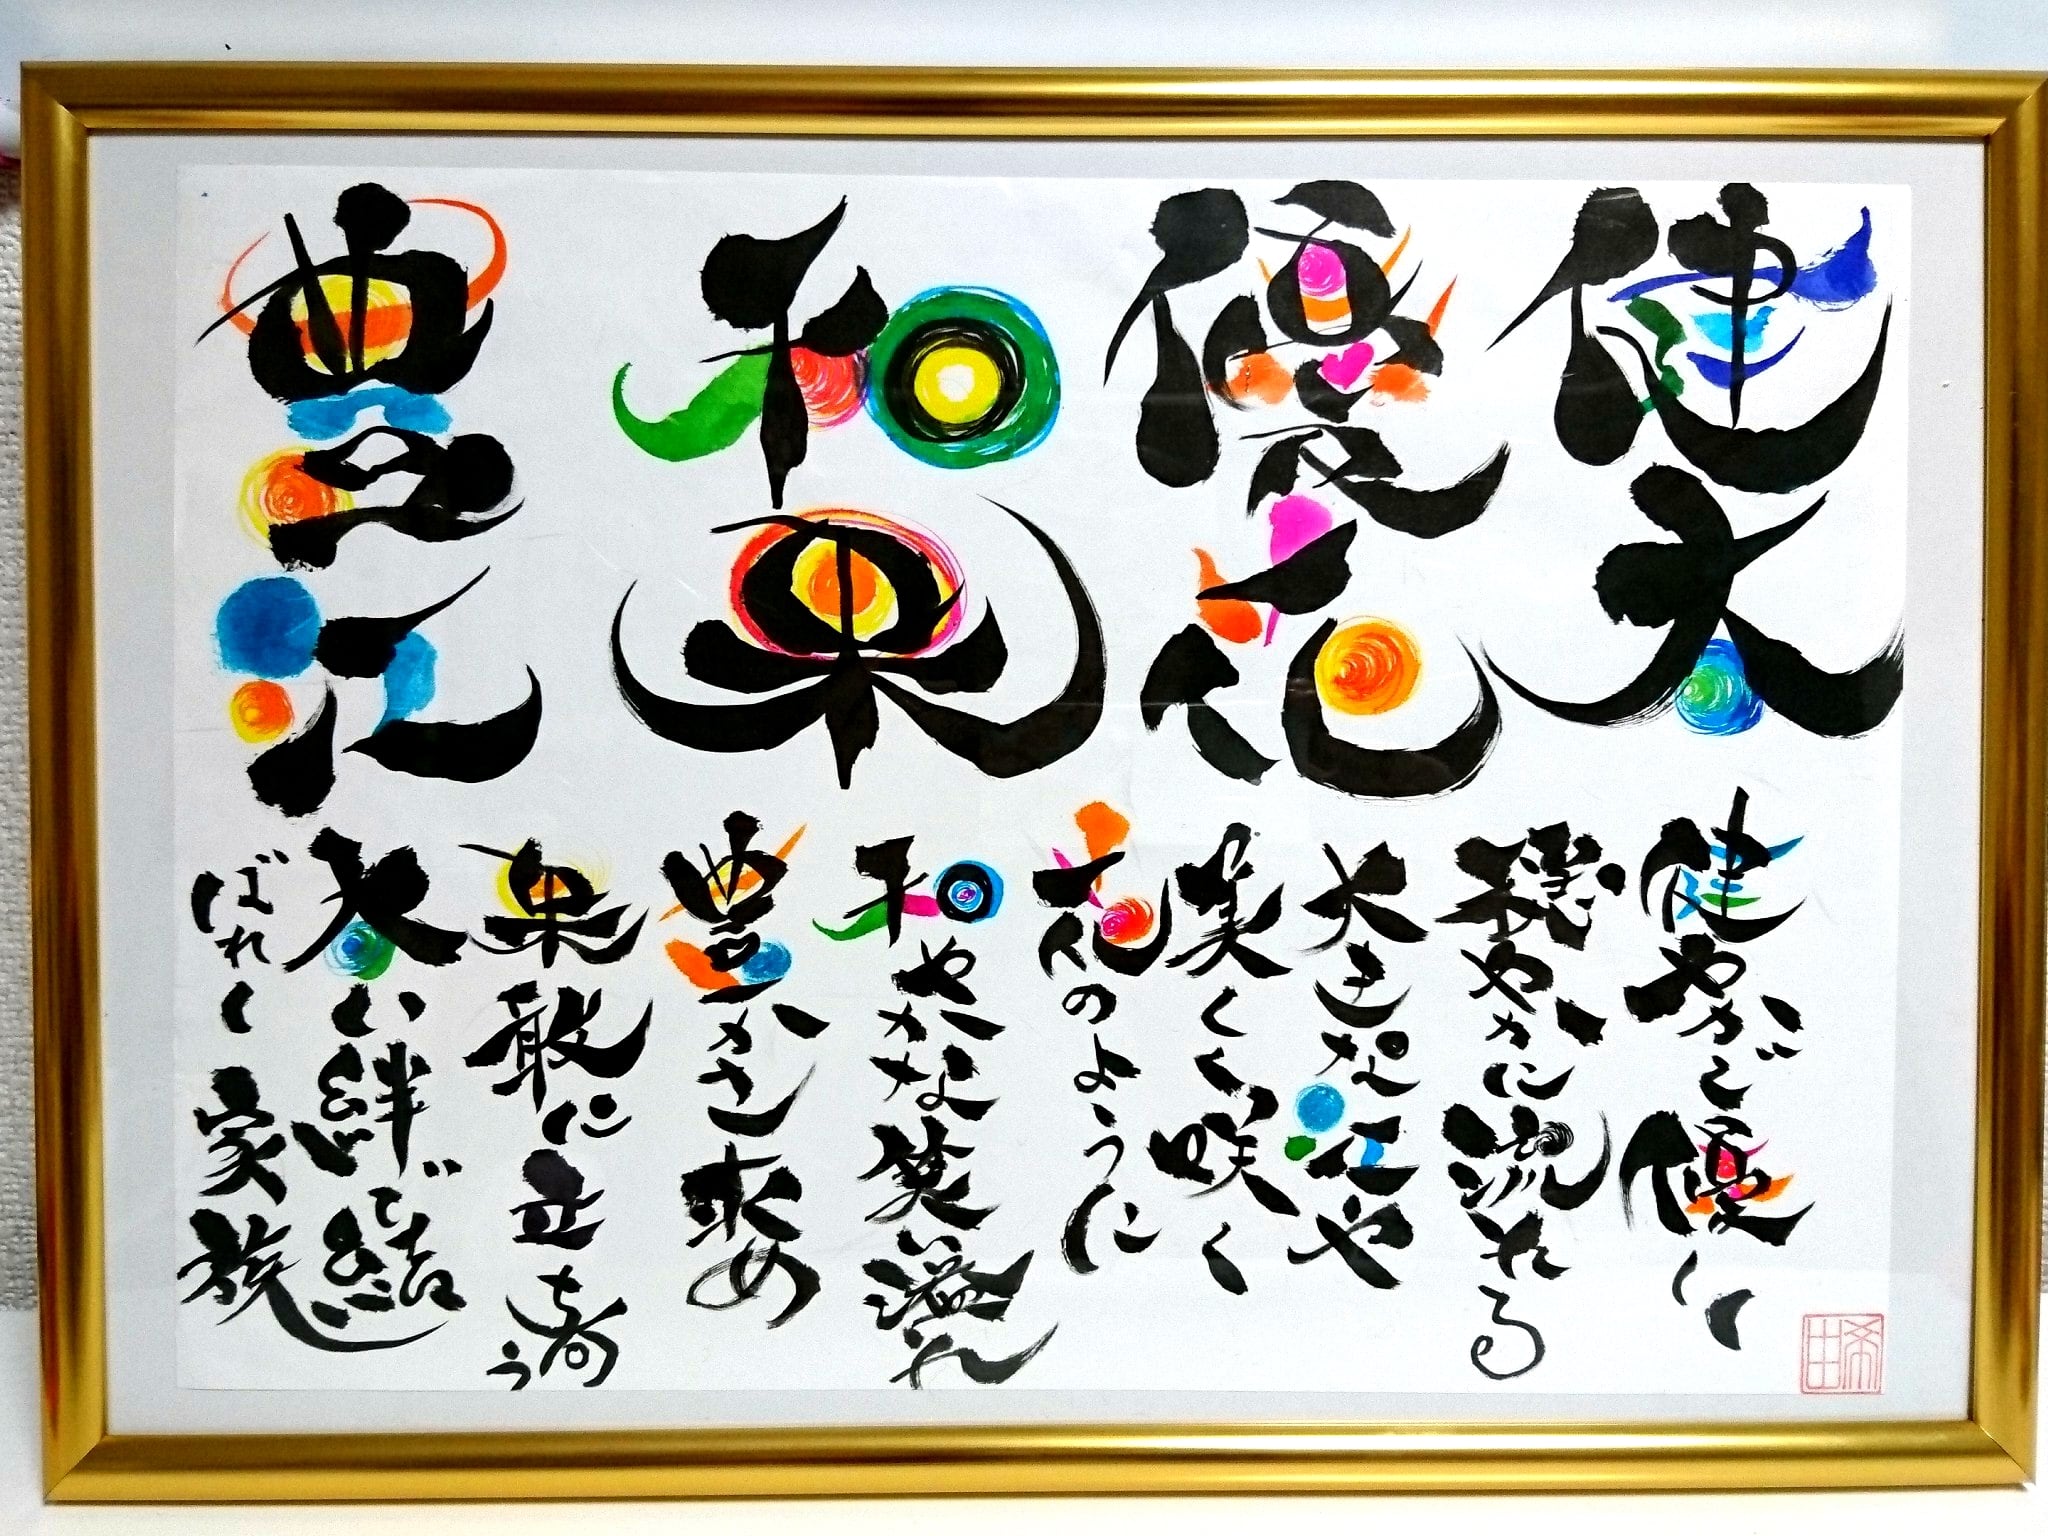 健太
優花
和果
豊江
健やかで優しい
穏やかに流れる
大きな江や
美しく咲く
花のように
和やかな笑溢れ
豊かさ求め
果敢に立ち向う
太い絆で結
ばれし家族